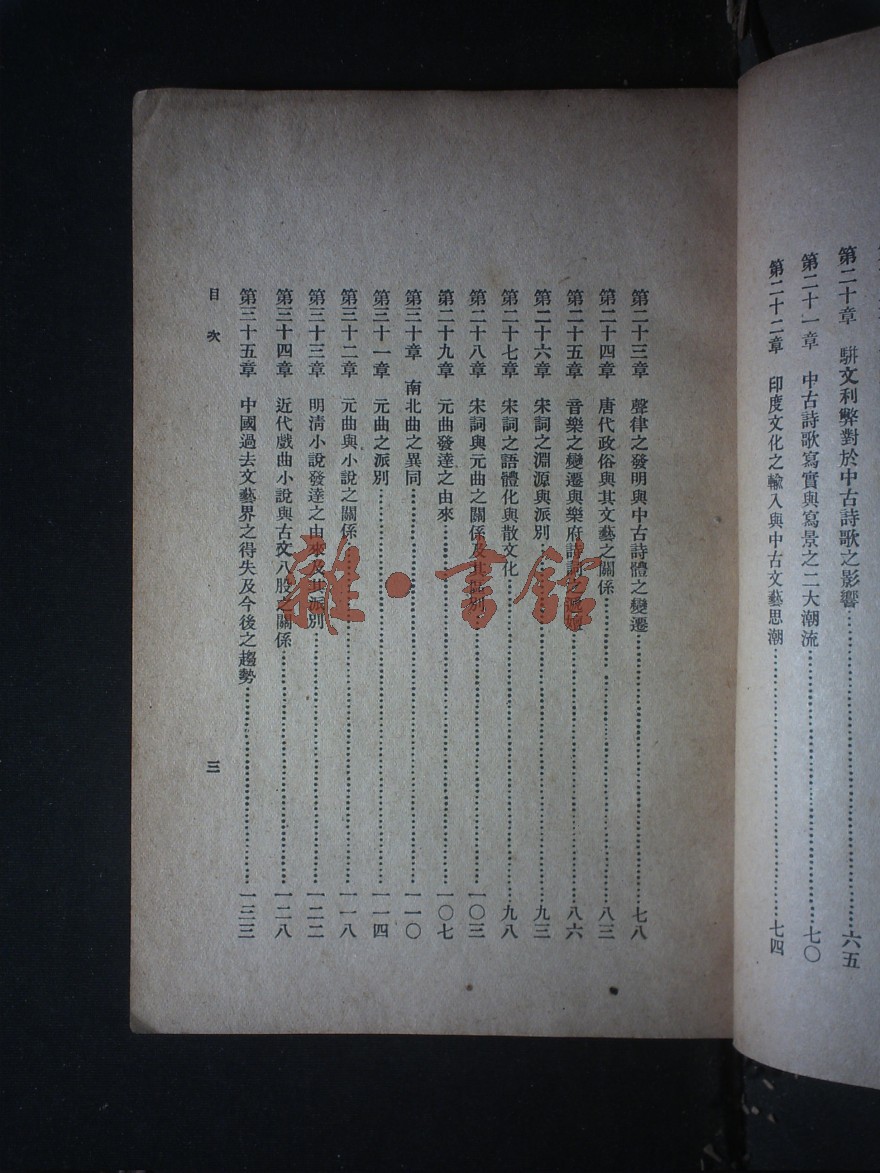 第二十章 駢文利弊對於中古詩歌之影響……六五
第二十一章 中古詩歌寫實與寫景之二大潮流……七〇
第二十二章 印度文化之輸入與中古文藝思潮……七四
第二十三章 聲律之發明與中古詩體之變遷……七八
第二十四章 唐代政俗與其文藝之關係……八三
第二十五章 音樂之變遷與樂府詩詞之……八六
第二十六章 宋詞之淵源與派別……九三
第二十七章 宋詞之語體化與散文化……九八
第二十八章 宋詞與元曲之關係及其區別……一〇三
第二十九章 元曲發達之由來……一〇七
第三十章 南北曲之異同……一一〇
第三十一章 元曲之派別……一一四
第三十二章 元曲與小說之關係……一一八
第三十三章 明清小說發達之由來及其派別……一二二
第三十四章 近代戲曲小說與古文八股之關係……一二八
第三十五章 中國過去文藝界之得失及今後之趨勢……一三三
目次 三
雜·書館